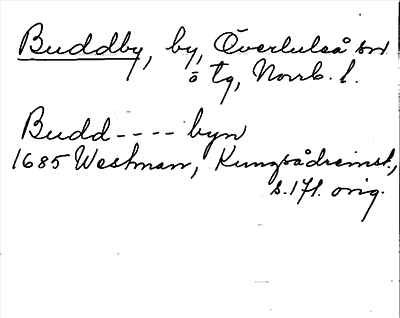 Buddby, by, Överluleå sn
o tg, Norrb. l.
Budd---- byn
1685 Westman, Kungsådreinst.,
s. 171. orig.